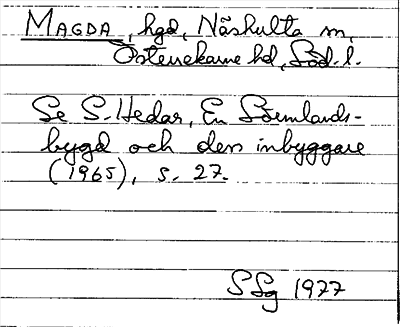 MAGDA, hgd, Näshulta sn,
Österrekarne hd, Söd. l.
Se S. Hedar, En Sörmlands-
bygd och dess inbyggare
(1965), s. 27.
SSg 1977